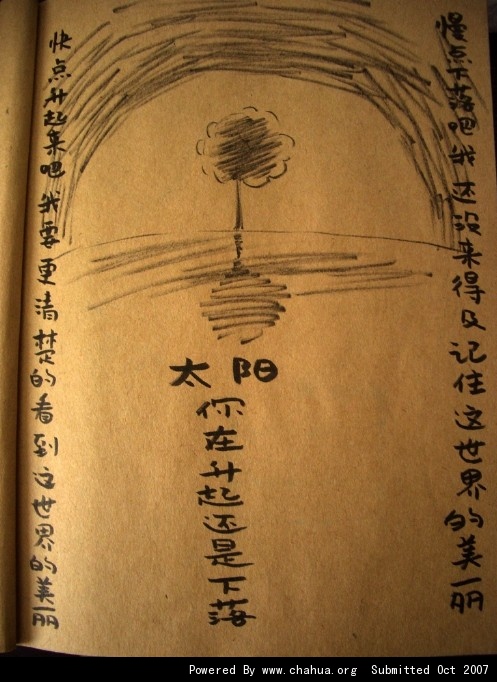 快点升起来吧 我要更清楚的看到这世界的美丽
太阳
你在升起还是下落
慢点下落吧我还没来得及记住这世界的美丽
Powered By www.chahua.org Submitted Oct 2007